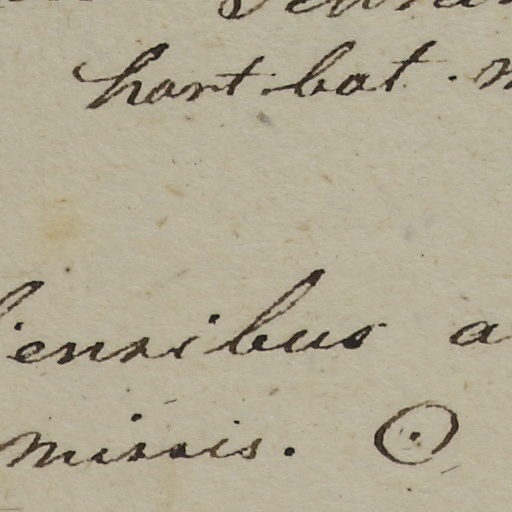 hort. bot.
iensibus a
missis. ⊙